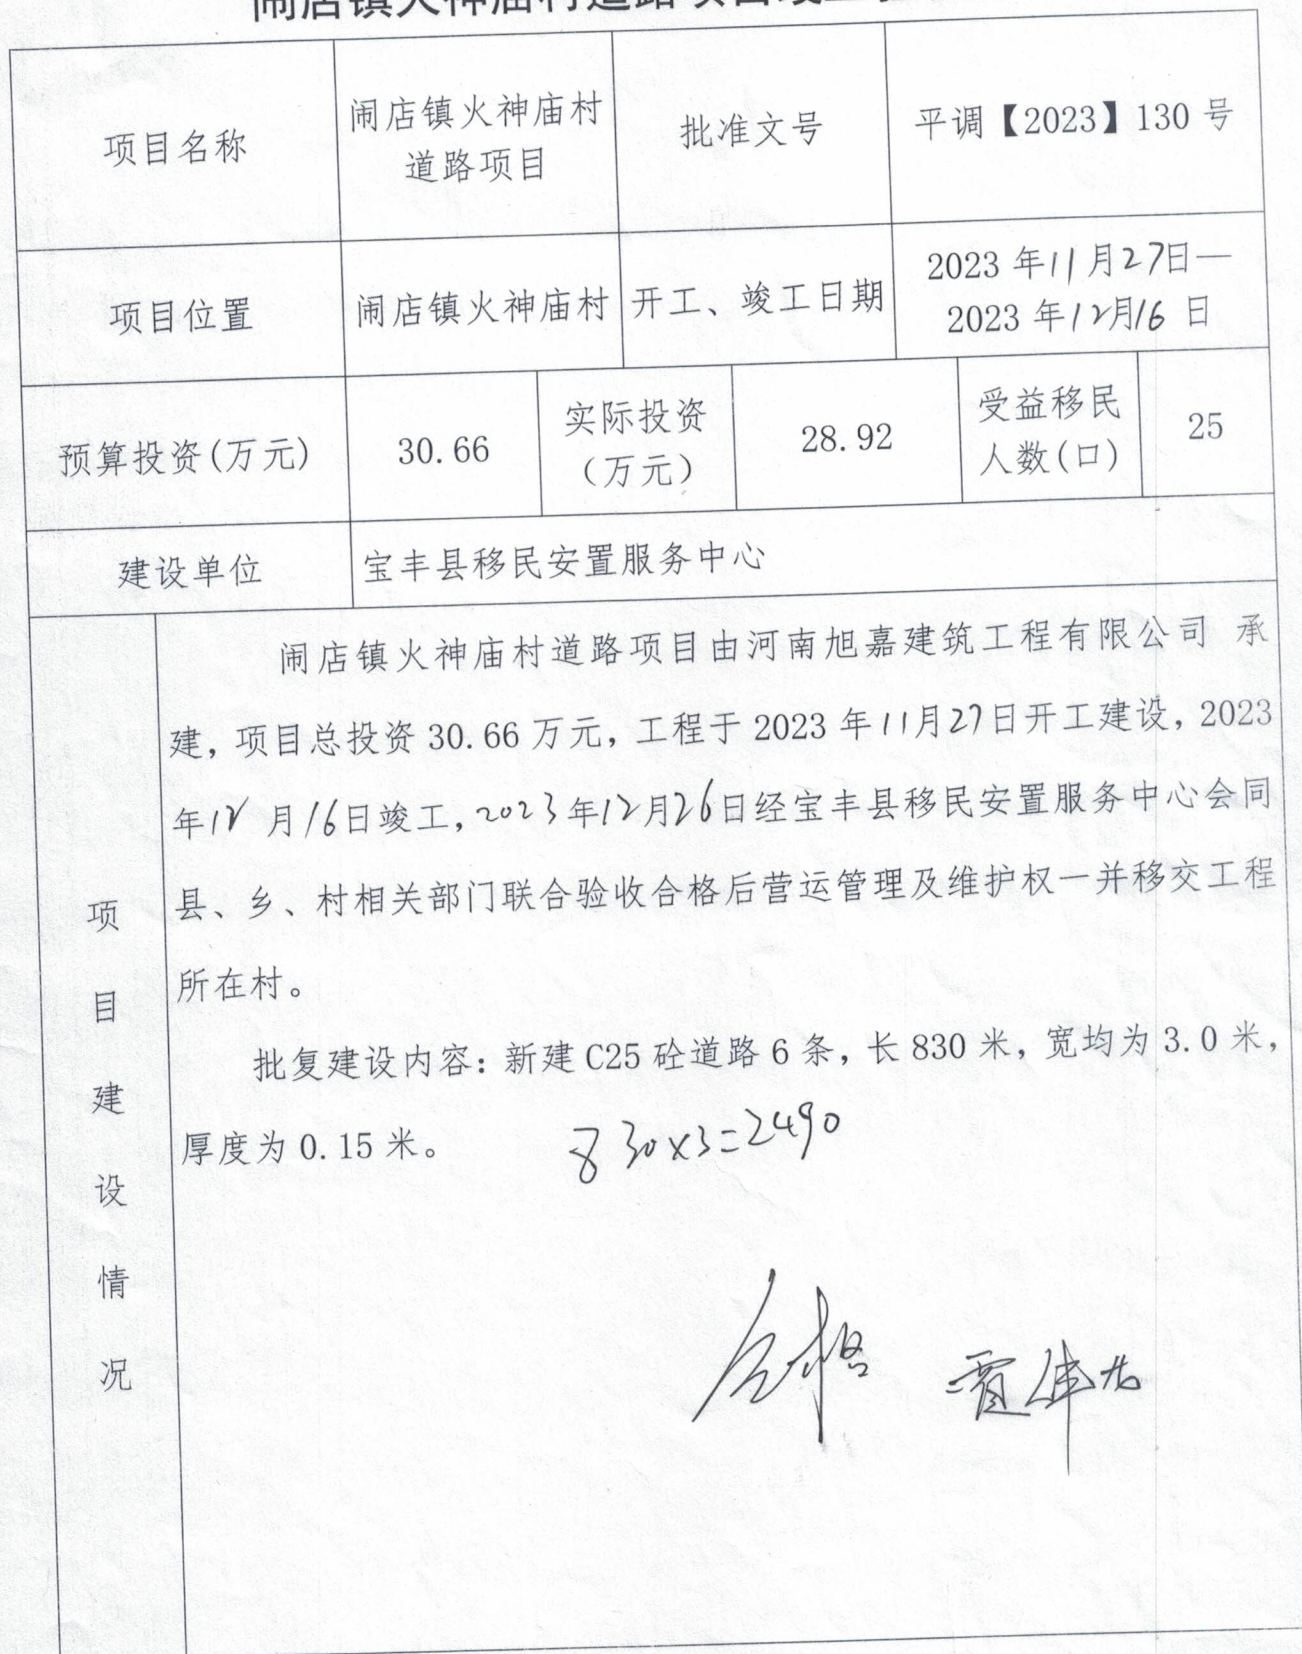 闹店镇火神庙村道路项目竣工验
项目名称
闹店镇火神庙村
道路项目
批准文号
平调【2023】130 号
项目位置
闹店镇火神庙村
开工、竣工日期
2023 年11月27日—
2023 年12月16 日
预算投资(万元)
30.66
实际投资
（万元）
28.92
受益移民
人数(口)
25
建设单位
宝丰县移民安置服务中心
项
目
建
设
情
况
闹店镇火神庙村道路项目由河南旭嘉建筑工程有限公司 承
建，项目总投资 30.66 万元，工程于 2023 年11月27日开工建设，2023
年12 月16日竣工，2023年12月26日经宝丰县移民安置服务中心会同
县、乡、村相关部门联合验收合格后营运管理及维护权一并移交工程
所在村。
批复建设内容：新建 C25 砼道路 6 条，长 830 米，宽均为 3.0 米，
厚度为 0.15 米。
830×3=2490
合格